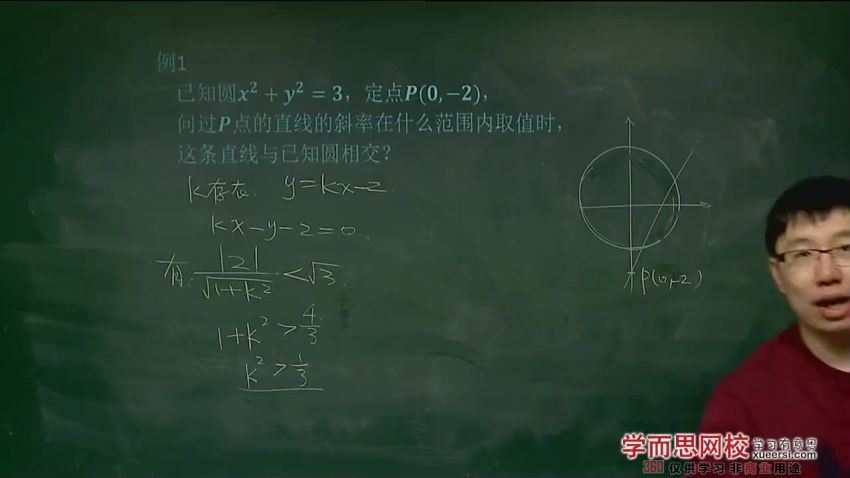 例1
已知圆x² + y² = 3，定点P(0,−2)，
问过P点的直线的斜率在什么范围内取值时，
这条直线与已知圆相交？
k存在. y=kx-2.
kx-y-2=0.
有: |2|/√(1+k²) < √3.
1+k² > 4/3.
k² > 1/3
P(0,-2)
学而思网校 学习有意思
xueersi.com
360 仅供学习 非商业用途